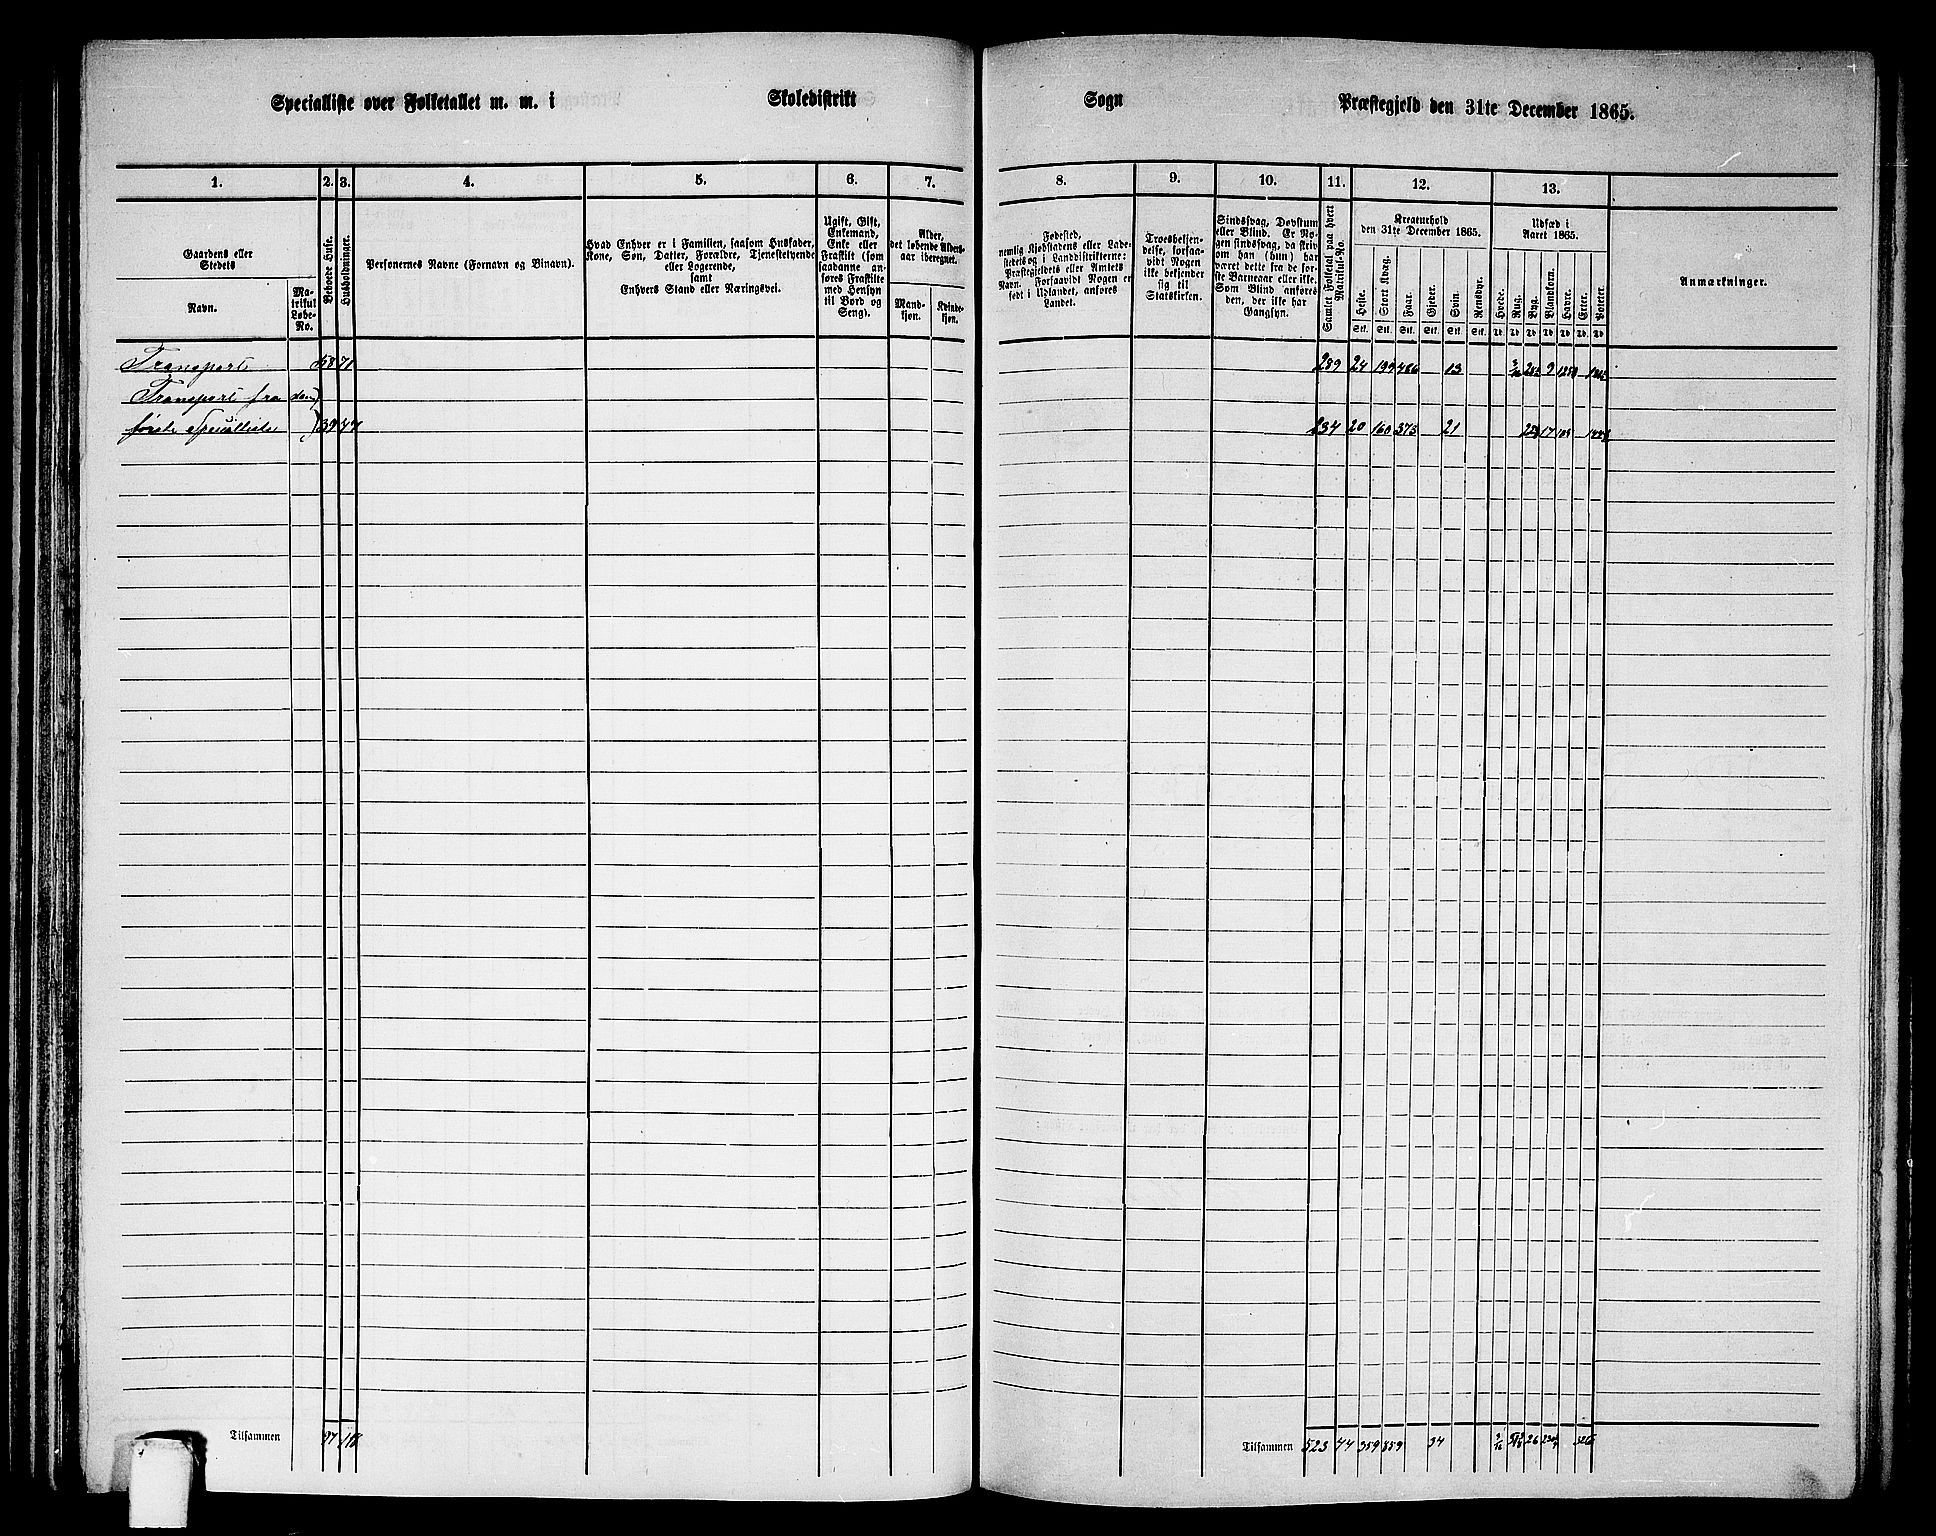 Specialliste over Folketallet m. m. i Skoledistrikt Sogn Præstegjeld den 31te December 1865.
1. 2. 3. 4. 5. 6. 7. 8. 9. 10. 11. 12. 13.
Gaardens eller
Stedets
Navn.
Ma-
trikul
Løbe-
No.
Beboede Huse.
Husholdninger.
Personernes Navne (Fornavn og Binavn).
Hvad Enhver er i Familien, saasom Husfader,
Kone, Søn, Datter, Forældre, Tjenestetyende
eller Logerende,
samt
Enhvers Stand eller Næringsvei.
Ugift, Gift,
Enkemand,
Enke eller
Fraskilt (som
saadanne an-
føres Fraskilte
med Hensyn
til Bord og
Seng).
Alder,
det løbende Alders-
aar iberegnet.
Mand-
kjøn.
Kvinde-
kjøn.
Fødested,
nemlig Kjøbstadens eller Lade-
stedets og i Landdistrikterne:
Præstegjeldets eller Amtets
Navn. Forsaavidt Nogen er
født i Udlandet, anføres
Landet.
Troesbekjen-
delse, forsaa-
vidt Nogen
ikke bekjender
sig til
Statskirken.
Sindssvag, Døvstum
eller Blind. Er No-
gen sindssvag, da skriv
om han (hun) har
været dette fra de før-
ste Barneaar eller ikke.
Som Blind anføres
den, der ikke har
Gangsyn.
Samlet Folketal paa hvert
Matrikul-No.
Kreaturhold
den 31te December 1865.
Heste. Stort Kvæg. Faar. Gjeder. Svin. Rensdyr.
Stk. Stk. Stk. Stk. Stk. Stk.
Udsæd i
Aaret 1865.
Hvede. Rug. Byg. Blandkorn. Havre. Erter. Poteter.
Td. Td. Td. Td. Td. Td. Td.
Anmærkninger.
Transport 58 71 289 24 199 486 13
Transport fra den
første Specialliste 39 47 234 20 160 373 21
Tilsammen 97 118 Tilsammen 523 44 359 859 34